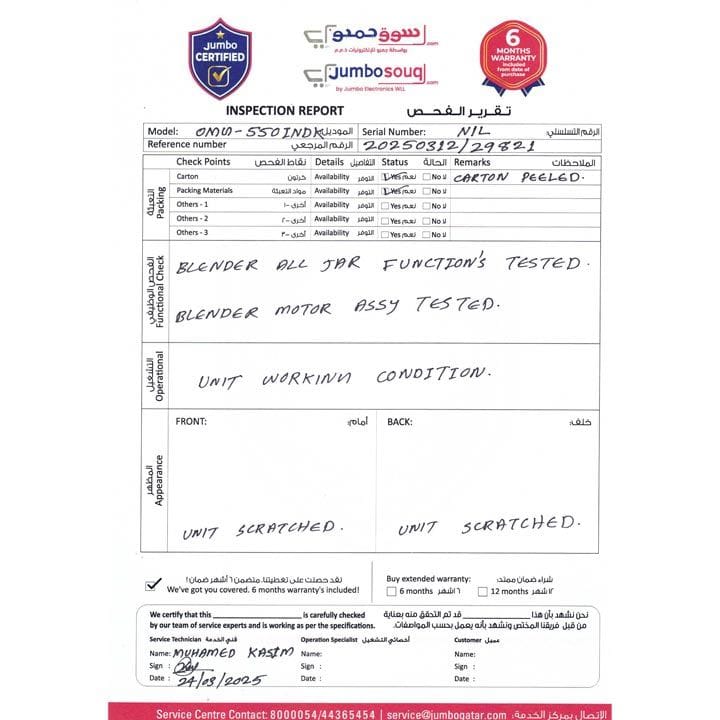 Jumbo
CERTIFIED
سوق جمبو.com
بواسطة جمبو للإلكترونيات ذ.م.م
jumbosouq.com
by Jumbo Electronics WLL
6
MONTHS
WARRANTY
Included
from date of
purchase
INSPECTION REPORT تقرير الفحص
Model: OMW-550INDK الموديل Serial Number: NIL الرقم التسلسلي:
Reference number الرقم المرجعي 20250312/29821
Check Points نقاط الفحص Details التفاصيل Status الحالة Remarks الملاحظات
Carton كرتون Availability التوفر Yes نعم No لا CARTON PEELED.
Packing Materials مواد التعبئة Availability التوفر Yes نعم No لا
Others - 1 أخرى -١ Availability التوفر Yes نعم No لا
Others - 2 أخرى -٢ Availability التوفر Yes نعم No لا
Others - 3 أخرى -٣ Availability التوفر Yes نعم No لا
التعبئة
Packing
BLENDER ALL JAR FUNCTION'S TESTED.
BLENDER MOTOR ASSY TESTED.
الفحص الوظيفي
Functional Check
UNIT WORKINN CONDITION.
التشغيل
Operational
FRONT: أمام: BACK: خلف:
المظهر
Appearance
UNIT SCRATCHED. UNIT SCRATCHED.
لقد حصلت على تغطيتنا. متضمن ٦ أشهر ضمان!
We've got you covered. 6 months warranty's included!
Buy extended warranty: شراء ضمان ممتد:
6 months ٦ اشهر 12 months ١٢ شهر
We certify that this ____ is carefully checked
by our team of service experts and is working as per the specifications.
نحن نشهد بأن هذا ____ قد تم التحقق منه بعناية
من قبل فريقنا المختص ونشهد بأنه يعمل بحسب المواصفات.
Service Technician فني الخدمة Operation Specialist أخصائي التشغيل Customer عميل
Name: MUHAMED KASIM Name: Name:
Sign : Sign : Sign :
Date : 24/03/2025 Date : Date :
Service Centre Contact: 8000054/44365454 | service@jumboqatar.com الإتصال بمركز الخدمة: